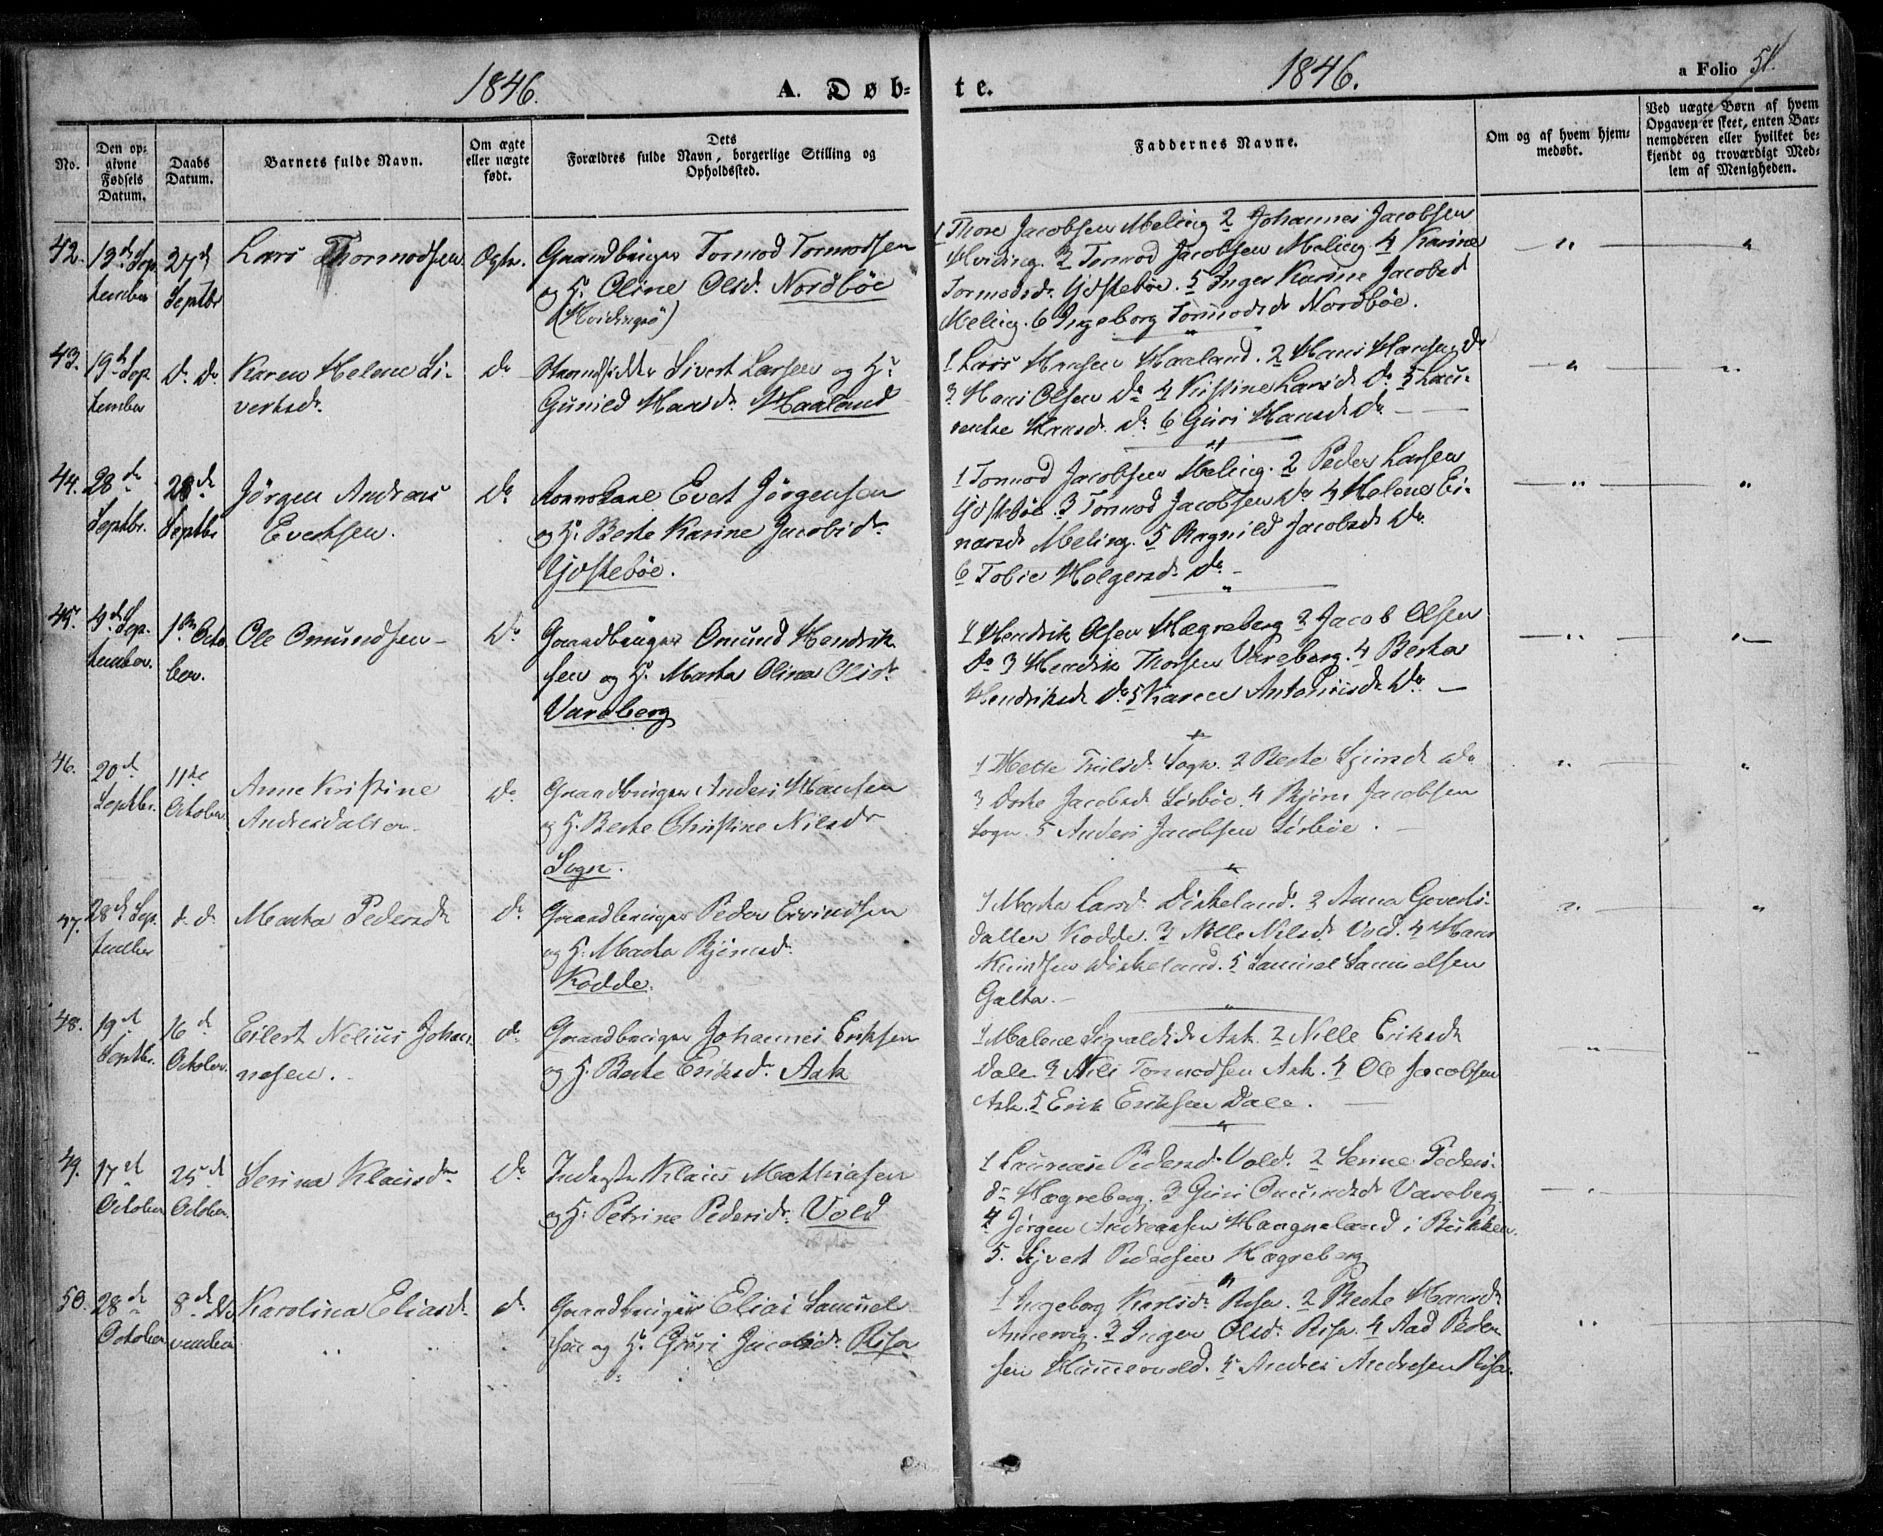 1846. A. Døb-
No.
Den op-
givne
Fødsels
Datum.
Daabs
Datum.
Barnets fulde Navn.
Om ægte
eller uægte
født.
Dets
Forældres fulde Navn, borgerlige Stilling og
Opholdssted.
te. 1846. a Folio 51.
Faddernes Navne.
Om og af hvem hjem-
medøbt.
Ved uægte Børn af hvem
Opgaven er skeet, enten Bar-
nemoderen eller hvilket be-
kjendt og troværdigt Med-
lem af Menigheden.
42.
tember
27de
Septbr
Lars Thormodsen
Ægte.
Gaardbruger Tormod Tormodsen
og H. Oline Olsd. Nordbøe
(Hvidingsö)
1 Thore Jacobsen Meling 2 Johannes Jacobsen
Hviding. 3 Tormod Jacobsen Meling 4 Karine
Tormodsd. Gjostebøe. 5 Inger Karine Jacobsd
Meling. 6 Ingeborg Tormodsd Nordbøe.
43.
19de Sep
tember
d. do
Karen Helene Si-
vertsd.
do
Strandsidder Sivert Larsen og H.
Gunild Hansd. Haaland
1 Lars Hansen Haaland. 2 Hans Hansen do
3 Hans Olsen do 4 Kistine Larsd. do 5 Lau-
rentse Hansd. do 6 Guri Hansd do
44.
28de
Septbr.
28de
Septbr
Jörgen Andreas
Evertsen.
do
Evert Jörgensen
og H. Berte Karine Jacobsd.
Gjostebøe.
1 Tormod Jacobsen Meling. 2 Peder Larsen
Gjostebøe. 3 Tormod Jacobsen do 4 Helene Ei-
narsd Meling. 5 Ragnild Jacobsd do
6 Tobie Holgersd. do
45.
Sep-
tember.
1ste Octo
ber.
Ole Omundsen
do
Gaardbruger Omund Hendrik
sen og H. Marta Olina Olsd.
Vareberg
1 Hendrik Olsen Hægreberg 2 Jacob Olsen
do 3 Hendrik Thorsen Vareberg. 4 Berta
Hendriksd do 5 Karen Antonisd do
46.
20de
Septbr.
11te
October
Anne Kristine
Andersdatter
do
Gaardbruger Anders Hansen
og H. Berte Christine Nilsd
Sogn.
1 Mette Sogn. 2 Berte do
3 Dorte Jacobsd Sörböe. 4 Björn Jacobsen
Sogn. 5 Anders Jacobsen Sörböe.
47.
28de Sep
tember
d. d.
Marta Pedersd
do
Gaardbruger Peder Eivindsen
og H. Marta Björnsd.
Kodde.
1 Marta Larsd. Dirkeland. 2 Anna Goverts-
datter Kodde. 3 Nille Nilsd. Vold. 4 Hans
Knudsen Dirkeland. 5 Samuel Samuelsen
Galta.
48.
19de
Septbr.
16de
October.
Eilert Nelius Johan
nesen.
do
Gaardbruger Johannes Eriksen
og H. Berte Eriksd. Ask
1 Malene Sigvaldsd Ask. 2 Nille Eriksd
Dale 3 Nils Tormodsen Ask. 4 Ole Jacobsen
Ask. 5 Erik Eriksen Dale.
49.
17de
October
25de
October.
Serina Klausd
do
Inderste Klaus Mathiasen
og H. Petrine Pedersd. Vold
1 Pedersd. Vold. 2 Serine Peders-
dr Hægreberg. 3 Guri Omundsd Vareberg
4 Jörgen Andreassen Haagneland i Bukken.
5. Sjvert Pedersen Hægreberg
50.
28de
October
8de No
vember
Karolina Eliasd.
do
Gaardbruger Elias Samuel
sen og H. Guri Jacobsd. Risa
1 Ingeborg Karlsd. Risa. 2 Berte Hansd
3 Inger Olsd. Risa. 4 Aad Peder
sen Hummervold. 5 Andres Andresen Risa.